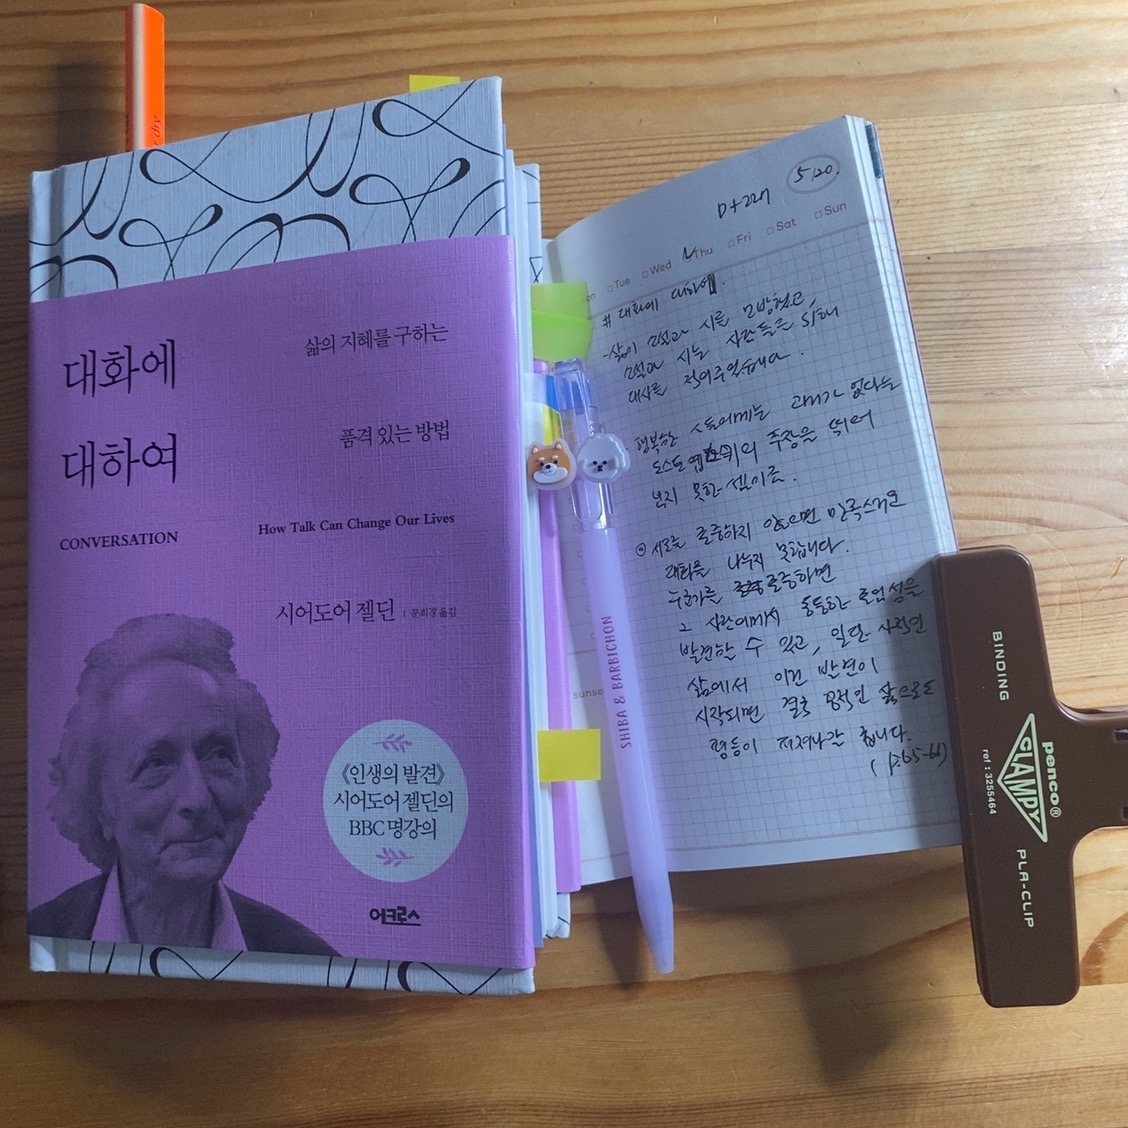 dry
대화에
대하여
CONVERSATION
삶의 지혜를 구하는
품격 있는 방법
How Talk Can Change Our Lives
시어도어 젤딘 | 문희경 옮김
《인생의 발견》
시어도어 젤딘의
BBC 명강의
어크로스
SHIBA & BARBICHON
5/20.
D+22개
Tue Wed Thu Fri Sat Sun
# 대화에 대하여.
- 삶이 소설과 시를 모방했고,
소설과 시는 사람들을 위해
대사를 적어주었습니다.
행복한 사람에게는 고마가 없다는
도스토옙스키의 주장을 뛰어
넘지 못한 셈이죠.
서로를 존중하지 않으면 만족스러운
대화를 나누지 못합니다.
누군가를 존중하면
그 사람에게서 동등한 존엄성을
발견할 수 있고, 일단 사적인
삶에서 이런 발견이
시작되면 결국 공적인 삶으로도
평등이 퍼져나갈 겁니다.
(p.65-66)
sunse
BINDING
penco®
CLAMPY
ref : 3255464
PLA-CLIP